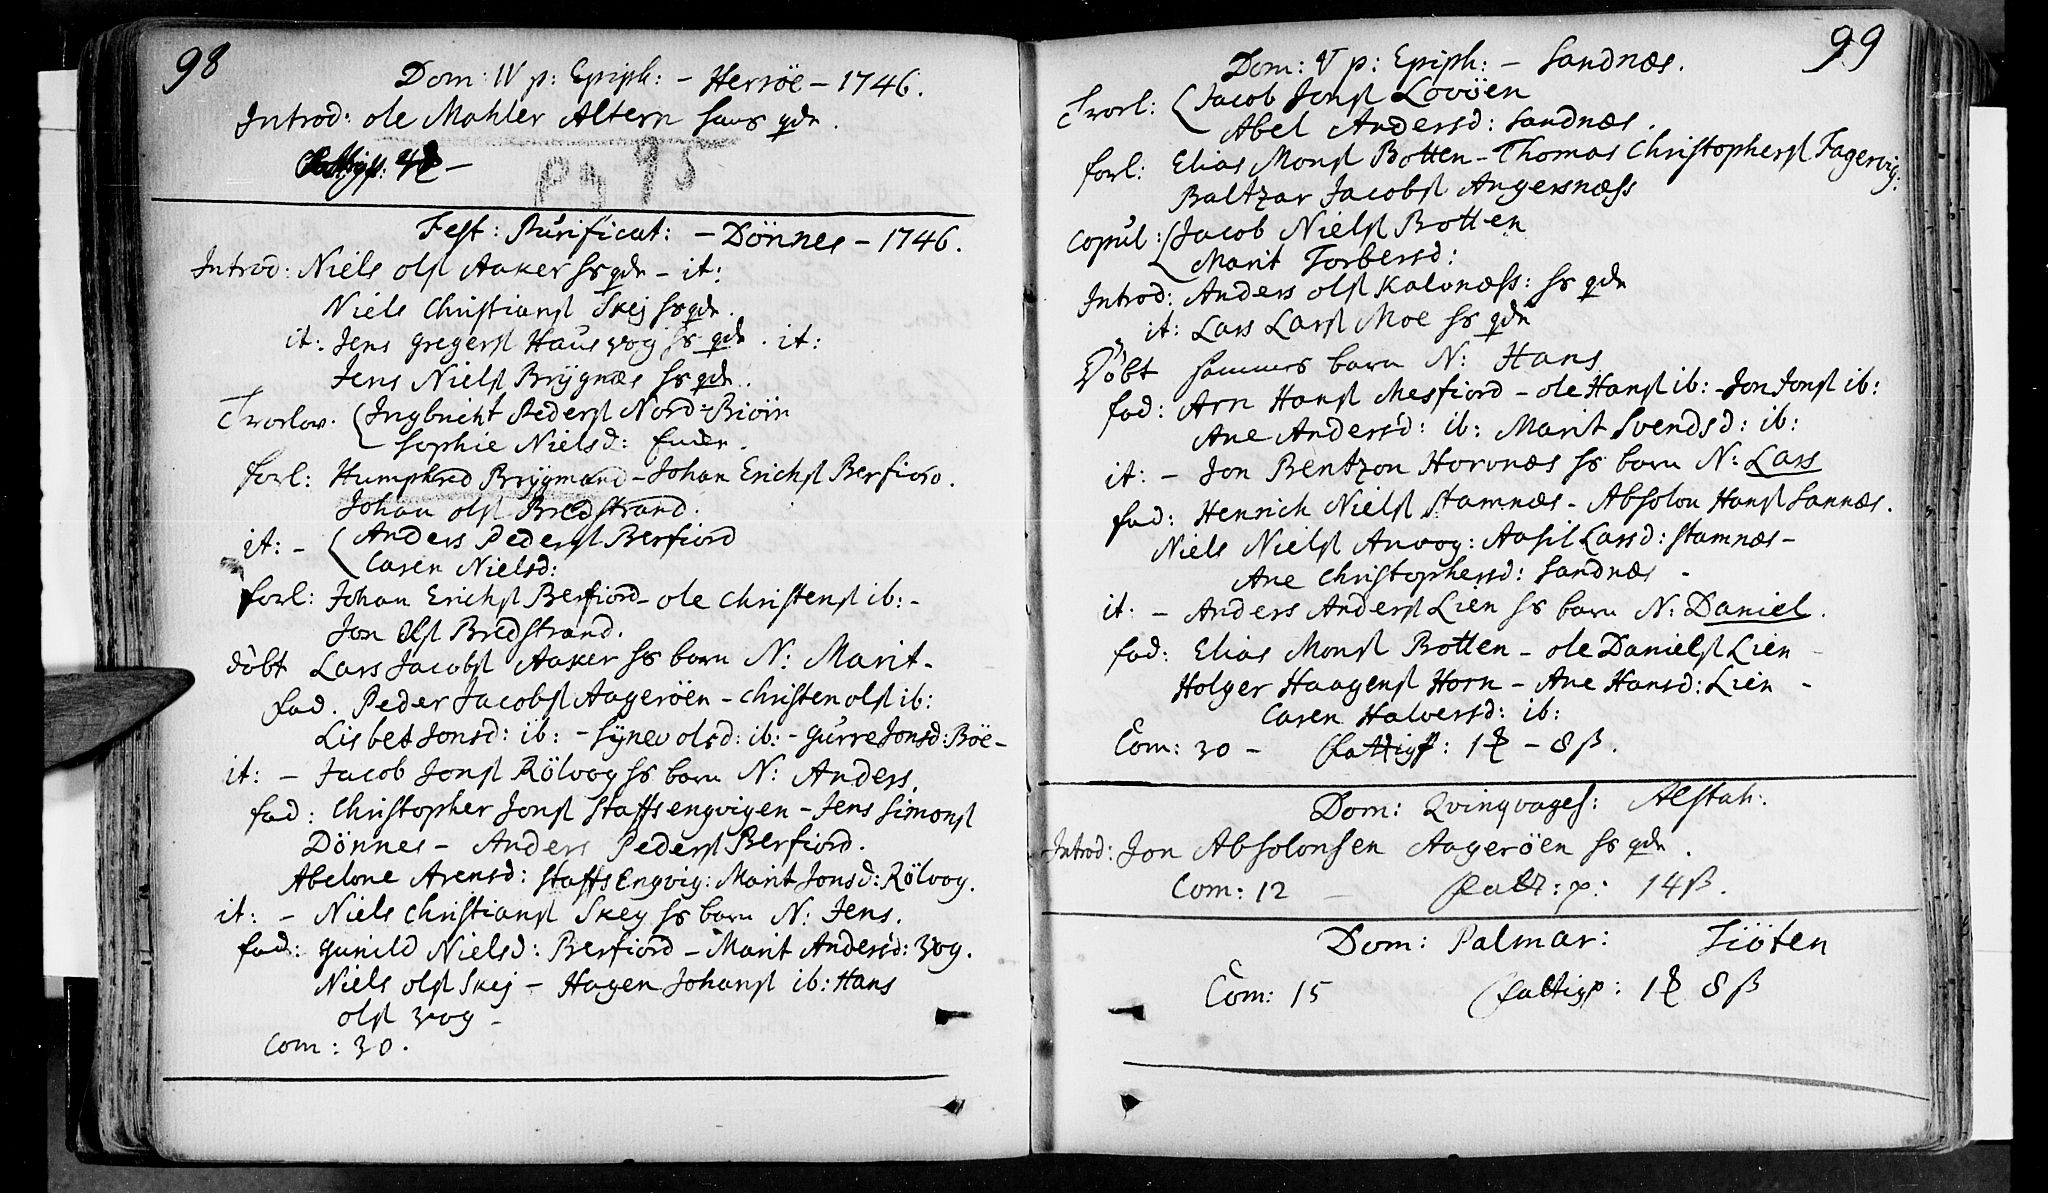 98
Dom: IV p: Epiph: - Herröe - 1746.
Introd: ole Mahler Altern hans qde.
4
pag 95
Fest: Purificat: - Dönnes - 1746.
Introd: Niels olss Aaker hs qde - it:
Niels Christianss Skej hs qde.
it: Jens gregerss Hausvog hs qde. it:
Jens Nielss Brÿgnæs hs qde.
Trorlov. Ingbricht Pederss Nord-Biörn
Sophie Nielsd:
forl: Humphred Brÿgmand - Johan Erichss Berfiord.
Johan olss Bredstrand.
it: - Anders Pederss Berfiord
Caren Nielsd:
forl: Johan Erichss Berfiord - ole Christenss ib: -
Jon olss Bredstrand.
döbt Lars Jacobss Aaker hs barn N: Marit -
fad. Peder Jacobss Aageröen - Christen olss ib:
Lisbet Jonsd: ib: - Sÿnev olsd: ib: - Gurre Jonsd: Böe -
it: - Jacob Jonss Rölvog hs barn N: Anders.
fad: Christopher Jonss Staffsengvigen - Jens Simonss
Dönnes - Anders Pederss Berfiord.
Abelone Arensd: Staffsengvig: Marit Jonsd: Rölvog.
it: - Niels Christianss Skey hs barn N: Jens.
fad: gunild Nielsd: Berfiord - Marit Andersd: Vog.
Niels olss Skej - Hagen Johanss ib: Hans
olss Vog -
Com: 30.
99
Dom: V p: Epiph: - Sandnæs.
Trorl: Jacob Jonss Lovöen
Abel Andersd: Sandnæs.
forl: Elias Monss Botten - Thomas Christopherss Fagervig:
Baltzar Jacobss Angersnæss
Copul: Jacob Nielss Botten
Marit Torbersd:
Introd: Anders olss Kalvnæss: hs qde
it: Lars Larss Moe hs qde
Döbt sammes barn N: Hans
fad: Arn Hanss Mesfiord - ole Hanss ib: - Jon Jonss ib:
Ane Andersd: ib: Marit Svendsd: ib:
it: - Jon Bentzon Horvnæs hs barn N: Lars
fad: Henrich Nielss Stamnæs - Absolon Hanss Sannæs.
Niels Nielss Anvog: Aasil Larsd: Stamnæs -
Ane Christophersd: Sandnæs -
it: - Anders Anderss Lien hs barn N: Daniel.
fad: Elias Monss Botten - ole Danielss Lien -
Holger Haagenss Horn - Ane Hansd: Lien -
Caren Halversd: ib:
Com: 30 - fattigp: 1 - 8 ß.
Dom: Qvinqvages: Alstah:
Introd: Jon Absolonsen Aageröen hs qde.
Com: 12 - fatt: p: 14 ß.
Dom: Palmar: Tiöten
Com: 15 fattigp: 1 8 ß